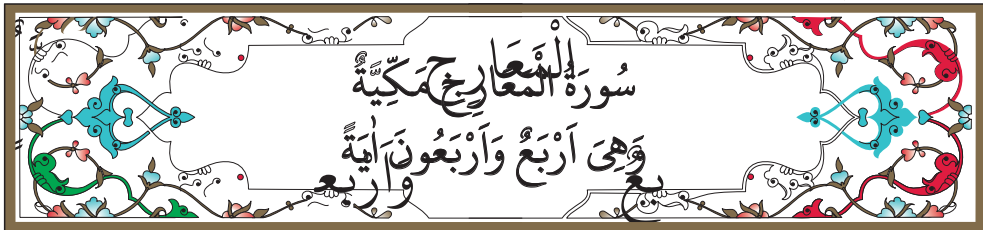 سُورَةُ الْمَعَارِجِ مَكِّيَّةٌ
وَهِىَ اَرْبَعٌ وَاَرْبَعُونَ اٰيَةً